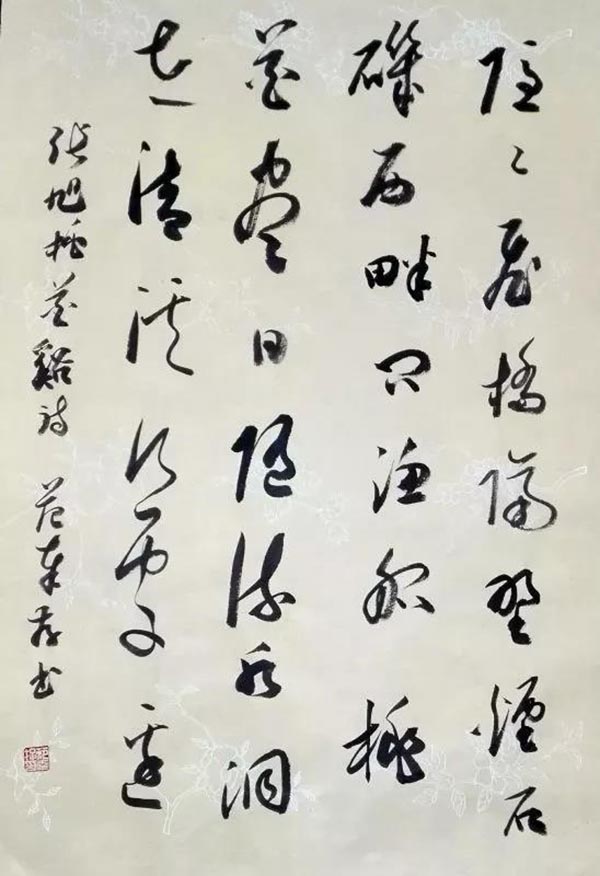 隱〻飛橋隔野煙石
磯西畔問漁船桃
花盡日隨流水洞
在清溪何處邊
張旭桃花谿詩 范存書